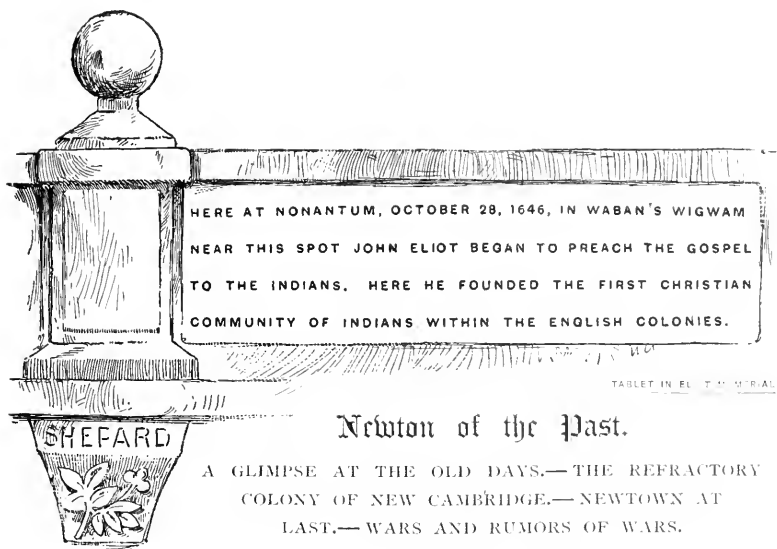 HERE AT NONANTUM, OCTOBER 28, 1646, IN WABAN'S WIGWAM
NEAR THIS SPOT JOHN ELIOT BEGAN TO PREACH THE GOSPEL
TO THE INDIANS. HERE HE FOUNDED THE FIRST CHRISTIAN
COMMUNITY OF INDIANS WITHIN THE ENGLISH COLONIES.
TABLET IN
SHEPARD
Newton of the Past.
A GLIMPSE AT THE OLD DAYS.—THE REFRACTORY
COLONY OF NEW CAMBRIDGE.—NEWTOWN AT
LAST.—WARS AND RUMORS OF WARS.